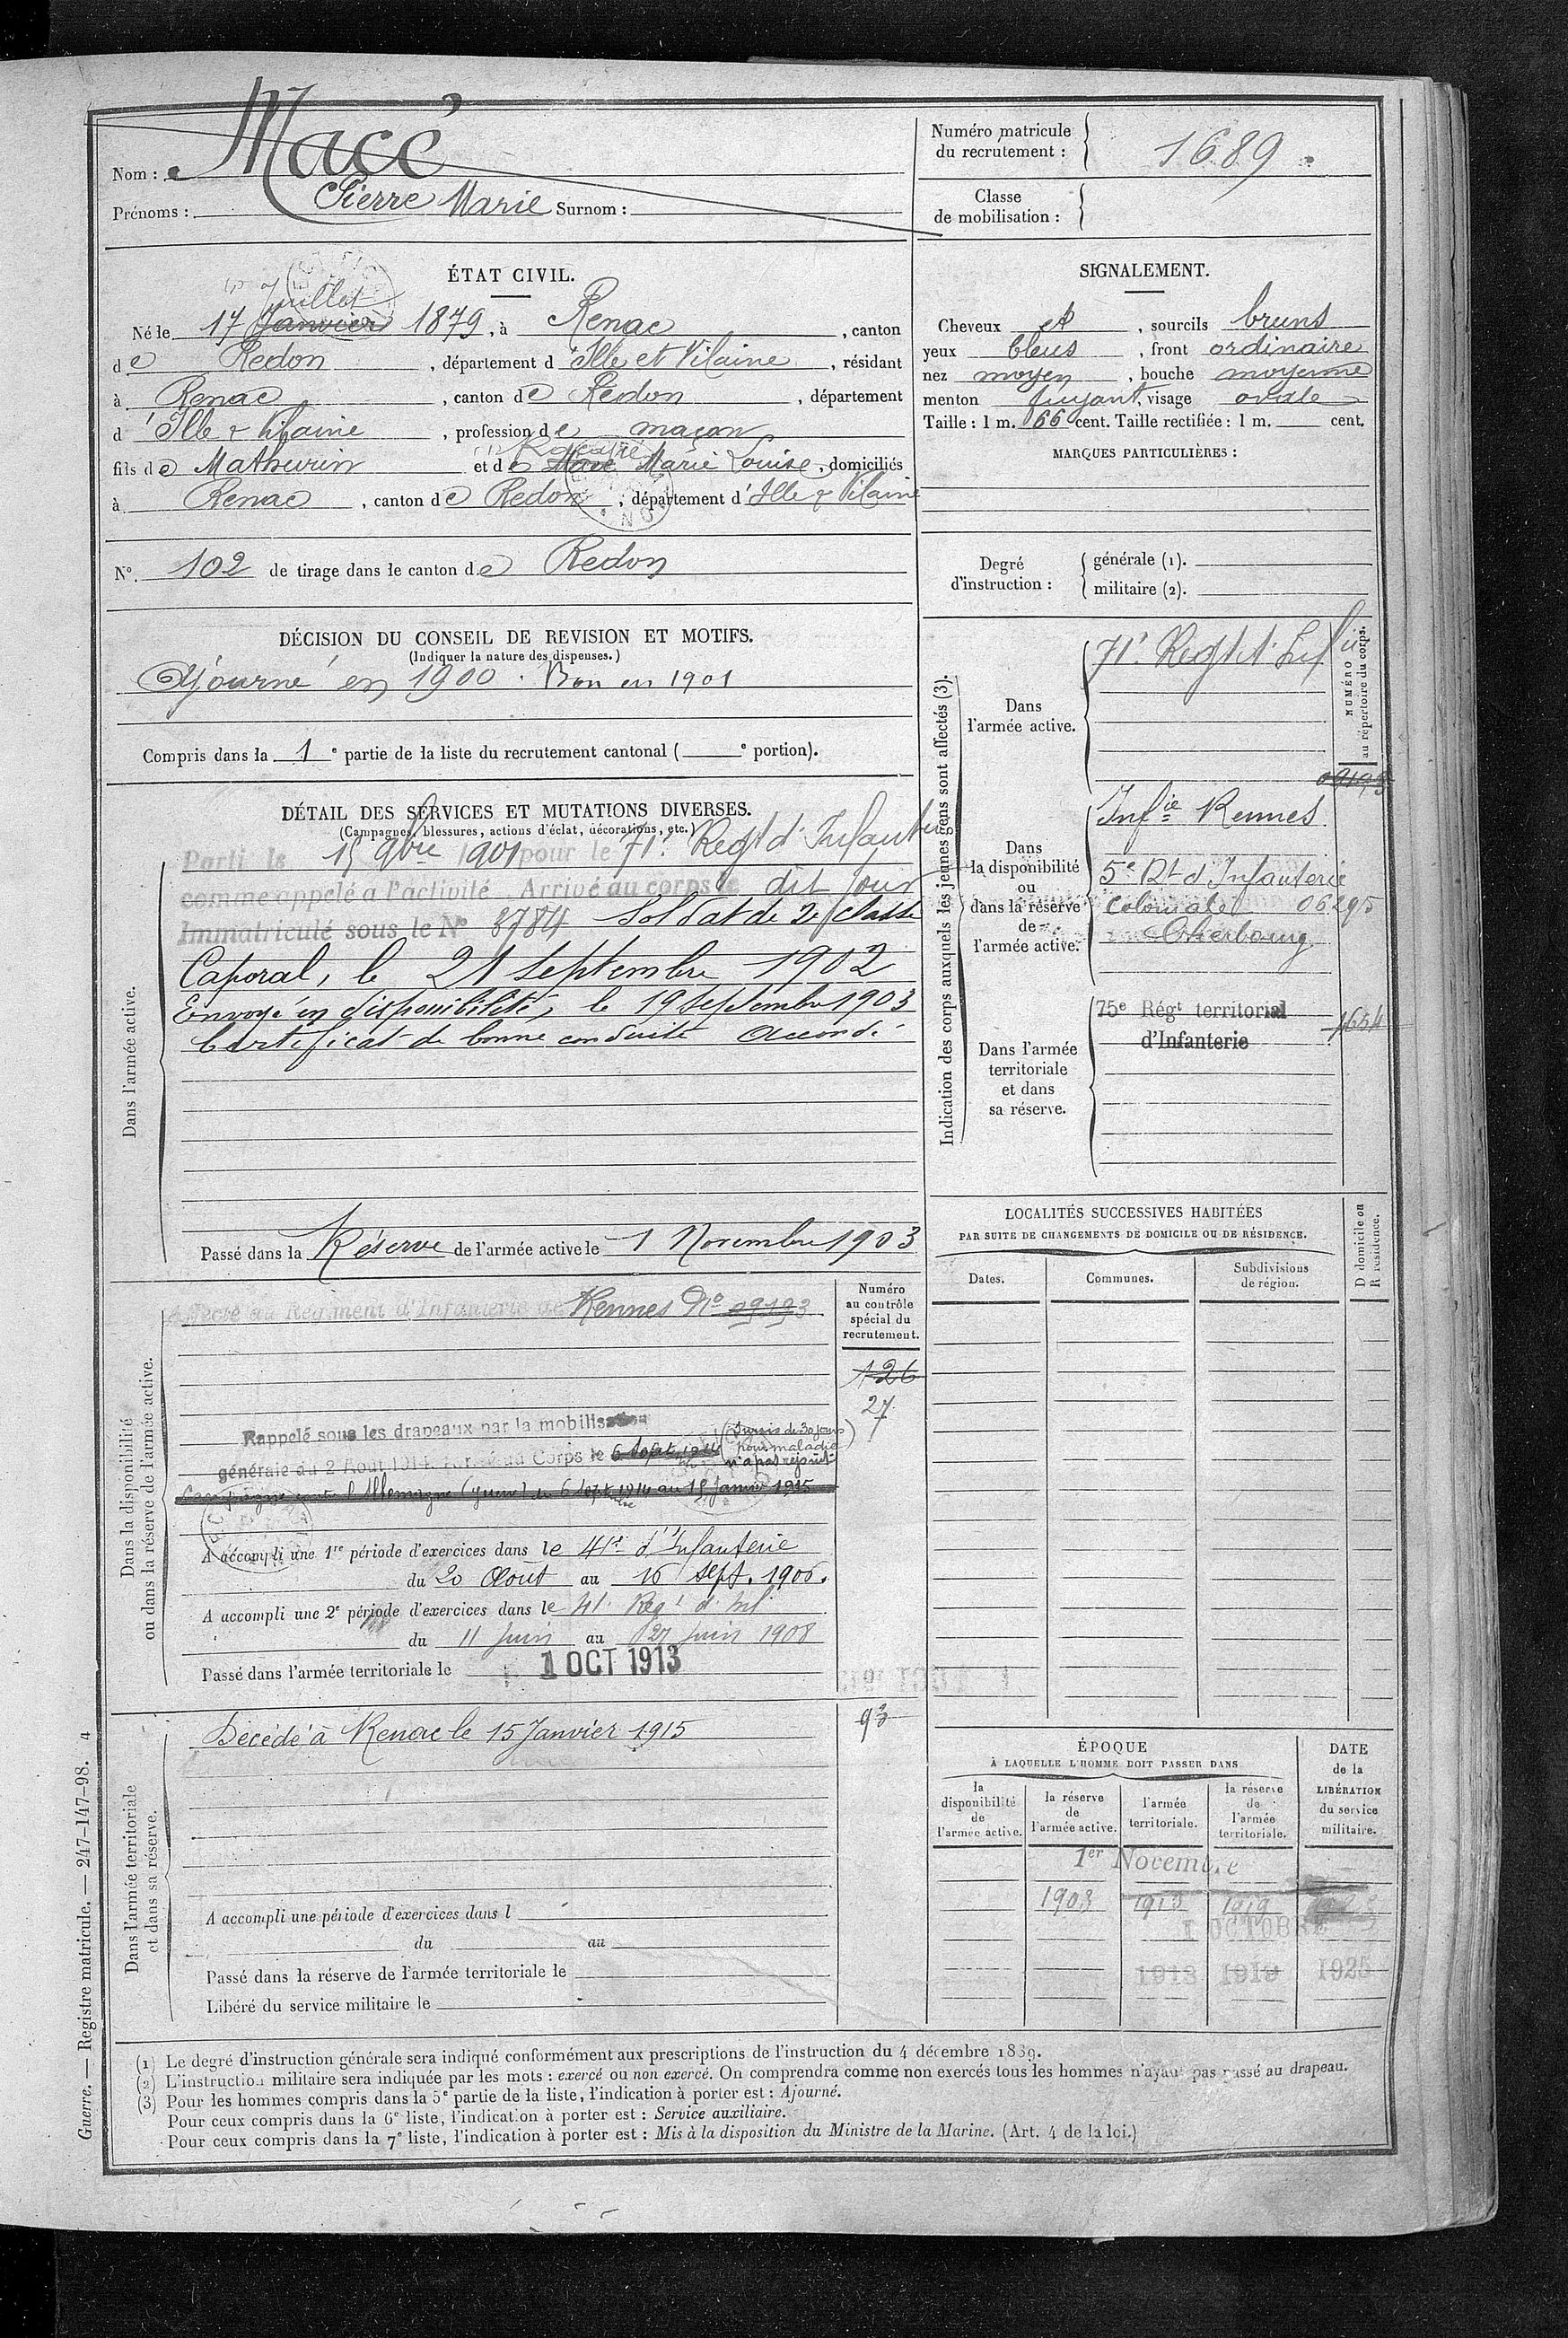 Nom : Macé
Prénoms : Pierre Marie Surnom :
Numéro matricule du recrutement : 1689
Classe de mobilisation :
ÉTAT CIVIL.
Juillet
Né le 17 Janvier 1879, à Renac, canton
de Redon, département d'Ille et Vilaine, résidant
à Renac, canton de Redon, département
d'Ille & Vilaine, profession de maçon
fils de Mathurin et de Macé Marie Louise, domiciliés
à Renac, canton de Redon, département d'Ille & Vilaine
N° 102 de tirage dans le canton de Redon
SIGNALEMENT.
Cheveux et, sourcils bruns
yeux bleus, front ordinaire
nez moyen, bouche moyenne
menton fuyant, visage ovale
Taille : 1 m. 66 cent. Taille rectifiée : 1 m. cent.
MARQUES PARTICULIÈRES :
Degré d'instruction : générale (1).
militaire (2).
DÉCISION DU CONSEIL DE REVISION ET MOTIFS.
(Indiquer la nature des dispenses.)
Ajourné en 1900. Bon en 1901
Compris dans la 1e partie de la liste du recrutement cantonal ( e portion).
DÉTAIL DES SERVICES ET MUTATIONS DIVERSES.
(Campagnes, blessures, actions d'éclat, décorations, etc.)
Dans l'armée active.
Parti le 15 9bre 1901 pour le 71e Regt d'Infanterie
comme appelé a l'activité Arrivé au corps le dit jour
Immatriculé sous le N° 8784 Soldat de 2e classe
Caporal, le 21 Septembre 1902
Envoyé en disponibilité, le 19 Septembre 1903
Certificat de bonne conduite accordé
Passé dans la Réserve de l'armée active le 1 Novembre 1903
Indication des corps auxquels les jeunes gens sont affectés (3).
NUMÉRO au répertoire du corps.
Dans l'armée active.
71e Regt d'Inf
Dans la disponibilité ou dans la réserve de l'armée active.
09193
Infie Rennes
5e Rt d'Infanterie
Coloniale 06295
Cherbourg
Dans l'armée territoriale et dans sa réserve.
75e Régt territorial
d'Infanterie
1654
LOCALITÉS SUCCESSIVES HABITÉES
PAR SUITE DE CHANGEMENTS DE DOMICILE OU DE RÉSIDENCE.
Dates. Communes. Subdivisions de région. D domicile ou R résidence.
Dans la disponibilité ou dans la réserve de l'armée active.
Numéro au contrôle spécial du recrutement.
Affecté au Régiment d'Infanterie de Rennes N° 09193
126
27
Rappelé sous les drapeaux par la mobilisation
générale du 2 Août 1914. Arrivé au Corps le 6 Sept. 1914 (Sursis de 30 jours
pour maladie)
n'a pas rejoint
Campagne contre l'Allemagne du 6 Sept 1914 au 15 Janvier 1915
A accompli une 1re période d'exercices dans le 41e d'Infanterie
du 20 Août au 16 sept. 1906.
A accompli une 2e période d'exercices dans le 41e Regt d'Inf
du 11 Juin au 27 Juin 1908
Passé dans l'armée territoriale le 1 OCT 1913
Dans l'armée territoriale et dans sa réserve.
Décédé à Renac le 15 Janvier 1915
93
A accompli une période d'exercices dans l
du au
Passé dans la réserve de l'armée territoriale le
Libéré du service militaire le
ÉPOQUE
À LAQUELLE L'HOMME DOIT PASSER DANS
la disponibilité de l'armée active.
la réserve de l'armée active.
l'armée territoriale.
la réserve de l'armée territoriale.
DATE de la LIBÉRATION du service militaire.
1er Novembre
1903 1913 1919
1 OCTOBRE
1913 1919 1925
(1) Le degré d'instruction générale sera indiqué conformément aux prescriptions de l'instruction du 4 décembre 1889.
(2) L'instruction militaire sera indiquée par les mots : exercé ou non exercé. On comprendra comme non exercés tous les hommes n'ayant pas passé au drapeau.
(3) Pour les hommes compris dans la 5e partie de la liste, l'indication à porter est : Ajourné.
Pour ceux compris dans la 6e liste, l'indication à porter est : Service auxiliaire.
Pour ceux compris dans la 7e liste, l'indication à porter est : Mis à la disposition du Ministre de la Marine. (Art. 4 de la loi.)
Guerre. — Registre matricule. — 247-147-98. 4